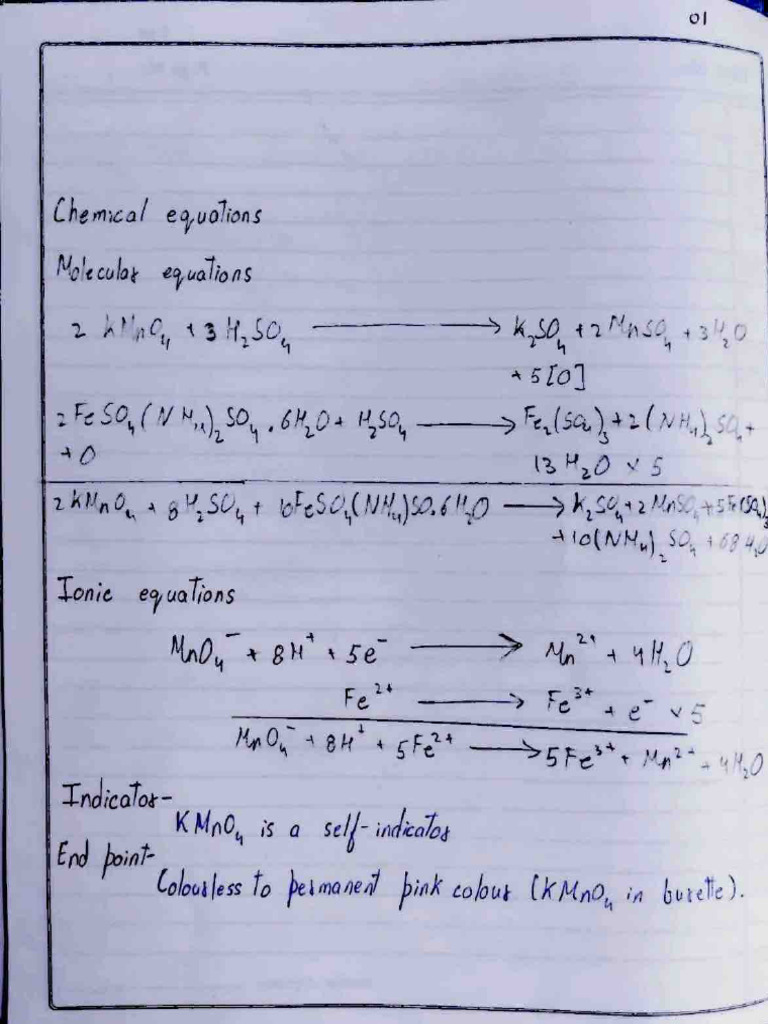 01
Chemical equations
Molecular equations
2 KMnO₄ + 3 H₂SO₄ ⟶ K₂SO₄ + 2 MnSO₄ + 3H₂O
+ 5[O]
2FeSO₄(NH₄)₂SO₄.6H₂O + H₂SO₄ ⟶ Fe₂(SO₄)₃ + 2(NH₄)₂SO₄ +
+ O
13 H₂O × 5
2KMnO₄ + 8H₂SO₄ + 10FeSO₄(NH₄)SO.6H₂O ⟶ K₂SO₄ + 2MnSO₄ + 5Fe(SO₄)₃
+ 10(NH₄)₂SO₄ + 68H₂O
Ionic equations
MnO₄⁻ + 8H⁺ + 5e⁻ ⟶ Mn²⁺ + 4H₂O
Fe²⁺ ⟶ Fe³⁺ + e⁻ × 5
MnO₄⁻ + 8H⁺ + 5Fe²⁺ ⟶ 5Fe³⁺ + Mn²⁺ + 4H₂O
Indicator-
KMnO₄ is a self-indicator
End point-
Colourless to permanent pink colour (KMnO₄ in burette).